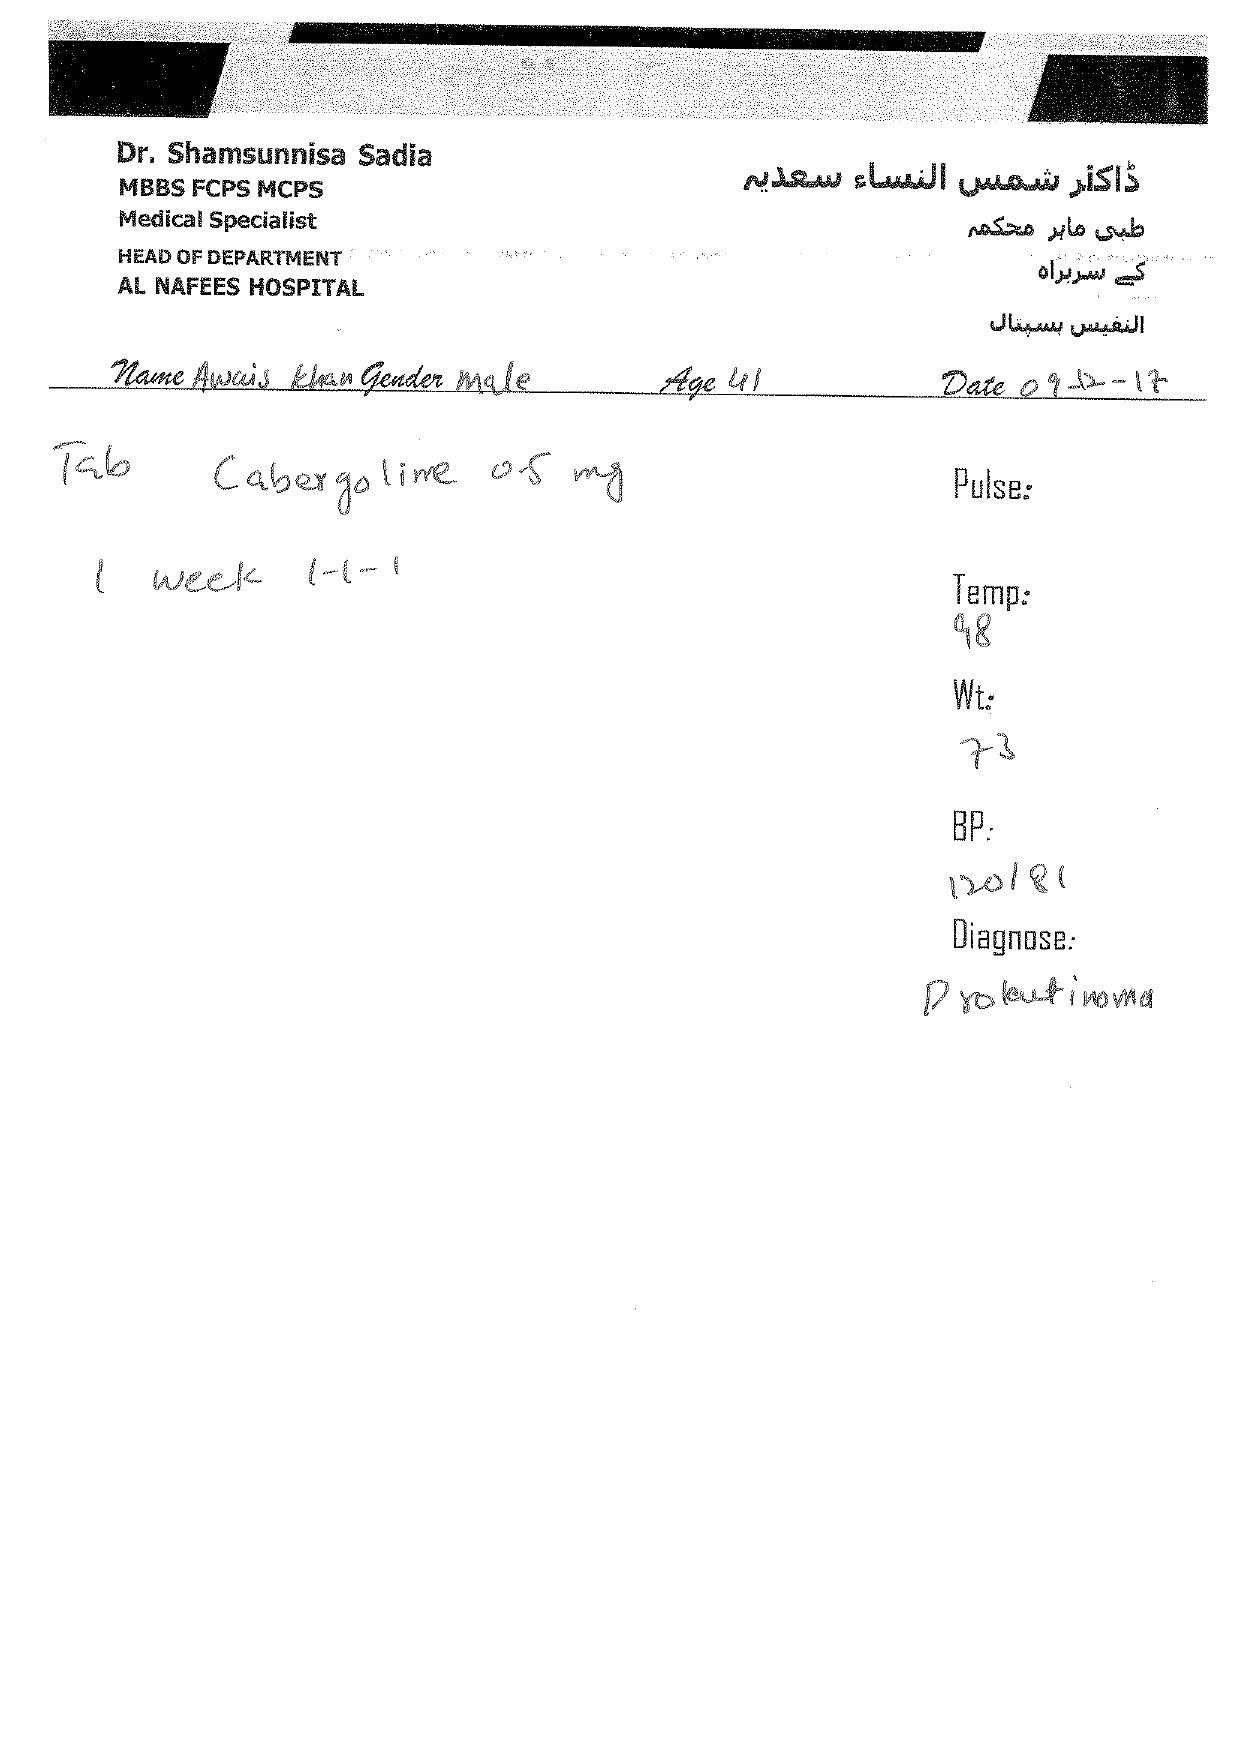 Dr. Shamsunnisa Sadia
MBBS FCPS MCPS
Medical Specialist
HEAD OF DEPARTMENT
AL NAFEES HOSPITAL
ڈاکٹر شمس النساء سعدیہ
طبی ماہر محکمہ
کے سربراہ
النفیس ہسپتال
Name Awais Khan Gender male Age 41 Date 09-12-17
Tab Cabergoline 0.5 mg
1 week 1-1-1
Pulse:
Temp:
98
Wt:
73
BP:
120/81
Diagnose:
Prolactinoma